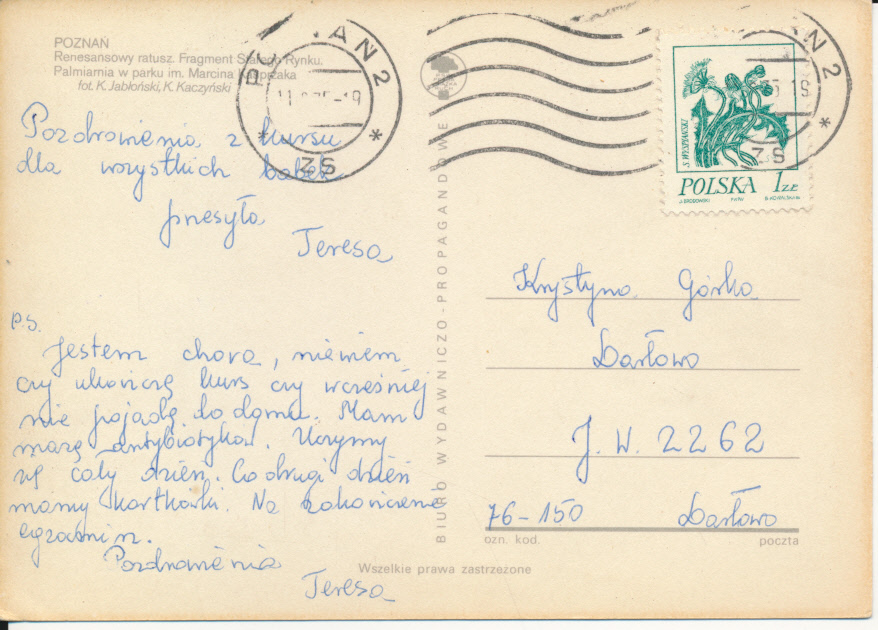 POZNAŃ
Renesansowy ratusz. Fragment Starego Rynku.
Palmiarnia w parku im. Marcina Kasprzaka
fot. K. Jabłoński, K. Kaczyński
Pozdrowienia z kursu
dla wszystkich babek
przesyła
Teresa
P.S.
Jestem chora, niewiem
czy ukończę kurs czy wcześniej
nie pojadę do domu. Mam
masę antybiotyków. Uczymy
się cały dzień. Co drugi dzień
mamy kartkówki. Na zakończenie
egzamin.
Pozdrowienia
Teresa
BIURO WYDAWNICZO-PROPAGANDOWE
Wszelkie prawa zastrzeżone
POZNAŃ 2
ZS
S. WYSPIAŃSKI
POLSKA 1 ZŁ
PWPW
Krystyna Górka
Darłowo
J. W. 2262
76-150 Darłowo
ozn. kod. poczta